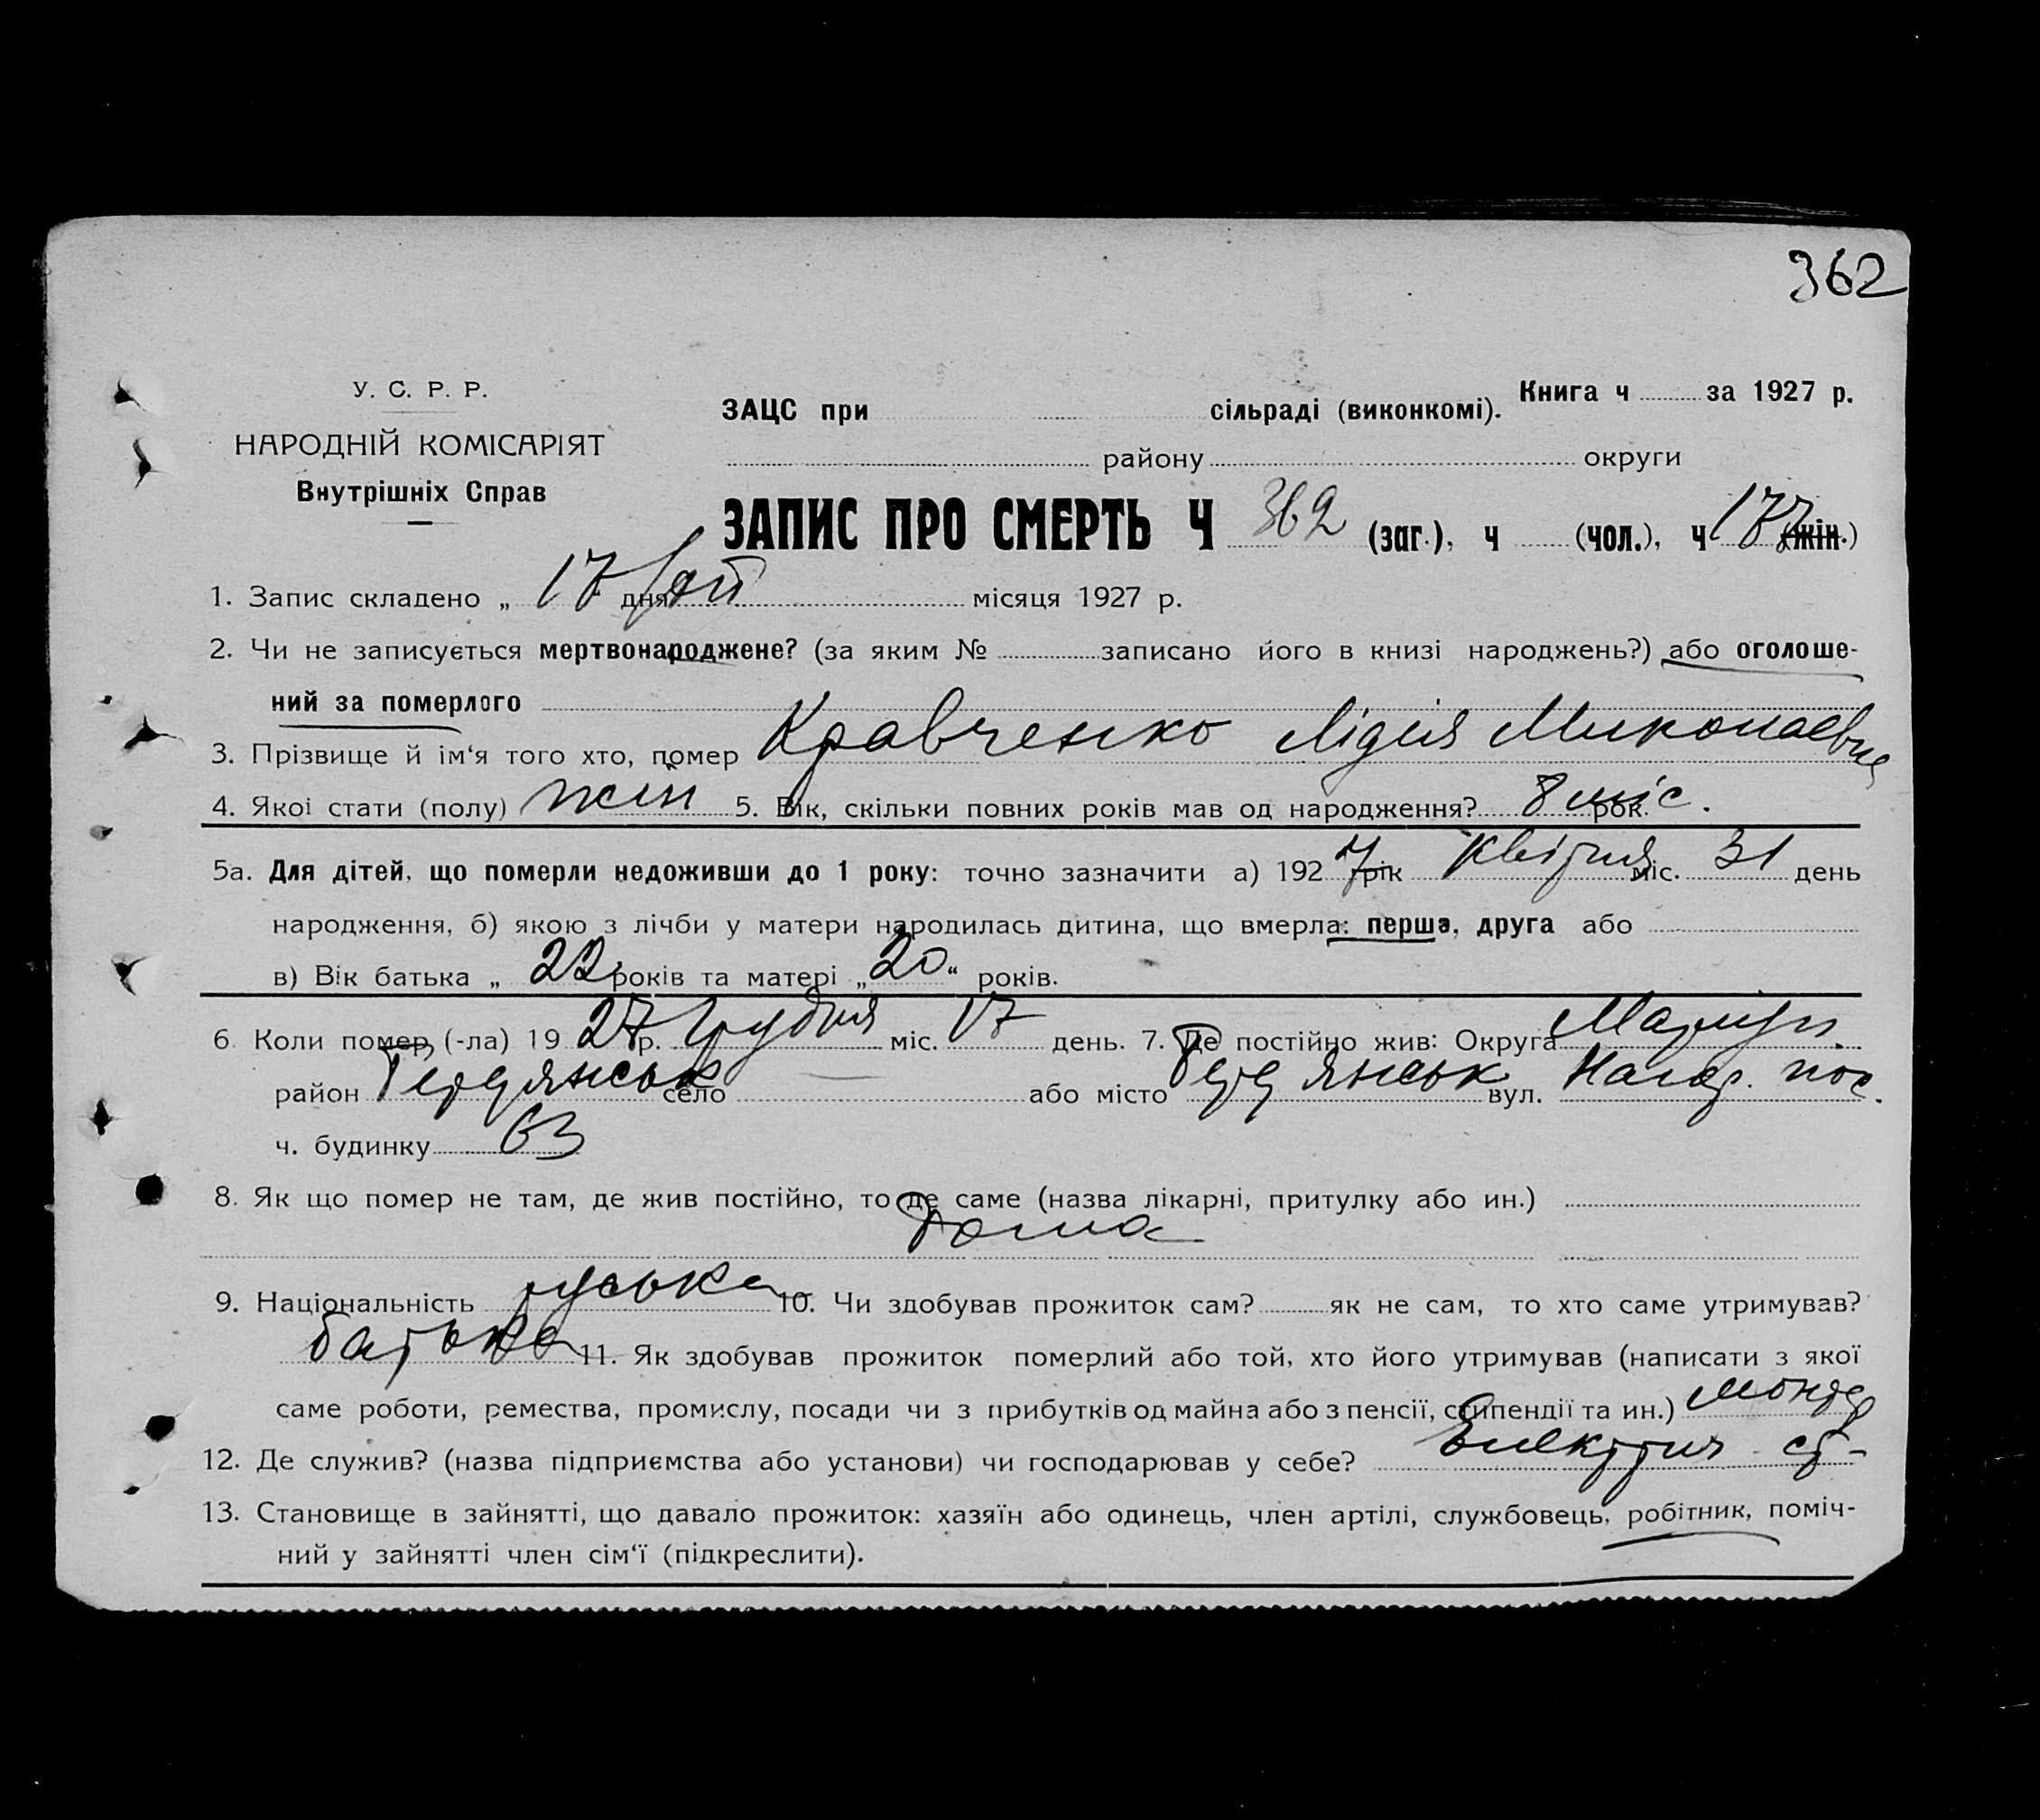 362
У. С. Р. Р.
НАРОДНІЙ КОМІСАРІЯТ
Внутрішніх Справ
Книга ч за 1927 р.
ЗАЦС при сільраді (виконкомі).
району округи
ЗАПИС ПРО СМЕРТЬ Ч 362 (заг.), ч (чол.), ч 177 (жін.)
1. Запис складено „ 17 дня місяця 1927 р.
2. Чи не записується мертвонароджене? (за яким № записано його в книзі народжень?) або оголоше-
ний за померлого
3. Прізвище й ім‘я того хто, помер Кравченко Лідія Миколаевна
4. Якої стати (полу) жін 5. Вік, скільки повних років мав од народження? 8 міс. рок.
5а. Для дітей, що померли недоживши до 1 року: точно зазначити а) 1927 рік Квітня міс. 31 день
народження, б) якою з лічби у матери народилась дитина, що вмерла: перша, друга або
в) Вік батька „ 22 років та матері „ 20 “ років.
6. Коли помер (-ла) 1927 р. Грудня міс. 17 день. 7. Де постійно жив: Округа Маріуп.
район Бердянськ село або місто Бердянськ вул. Нагор. пос.
ч. будинку 63
8. Як що помер не там, де жив постійно, то де саме (назва лікарні, притулку або ин.)
Дома
9. Національність руська 10. Чи здобував прожиток сам? як не сам, то хто саме утримував?
батько 11. Як здобував прожиток померлий або той, хто його утримував (написати з якої
саме роботи, ремества, промислу, посади чи з прибутків од майна або з пенсії, стипендії та ин.) монтер
12. Де служив? (назва підприємства або установи) чи господарював у себе? Електрич ст-
13. Становище в зайнятті, що давало прожиток: хазяїн або одинець, член артілі, службовець, робітник, поміч-
ний у зайнятті член сім‘ї (підкреслити).